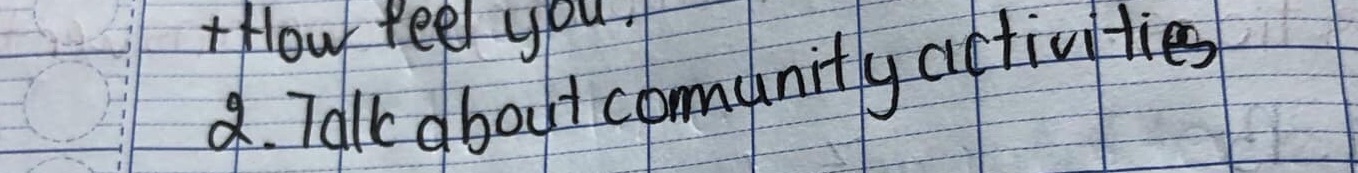 + How feel you.
2. Talk about comunity activities